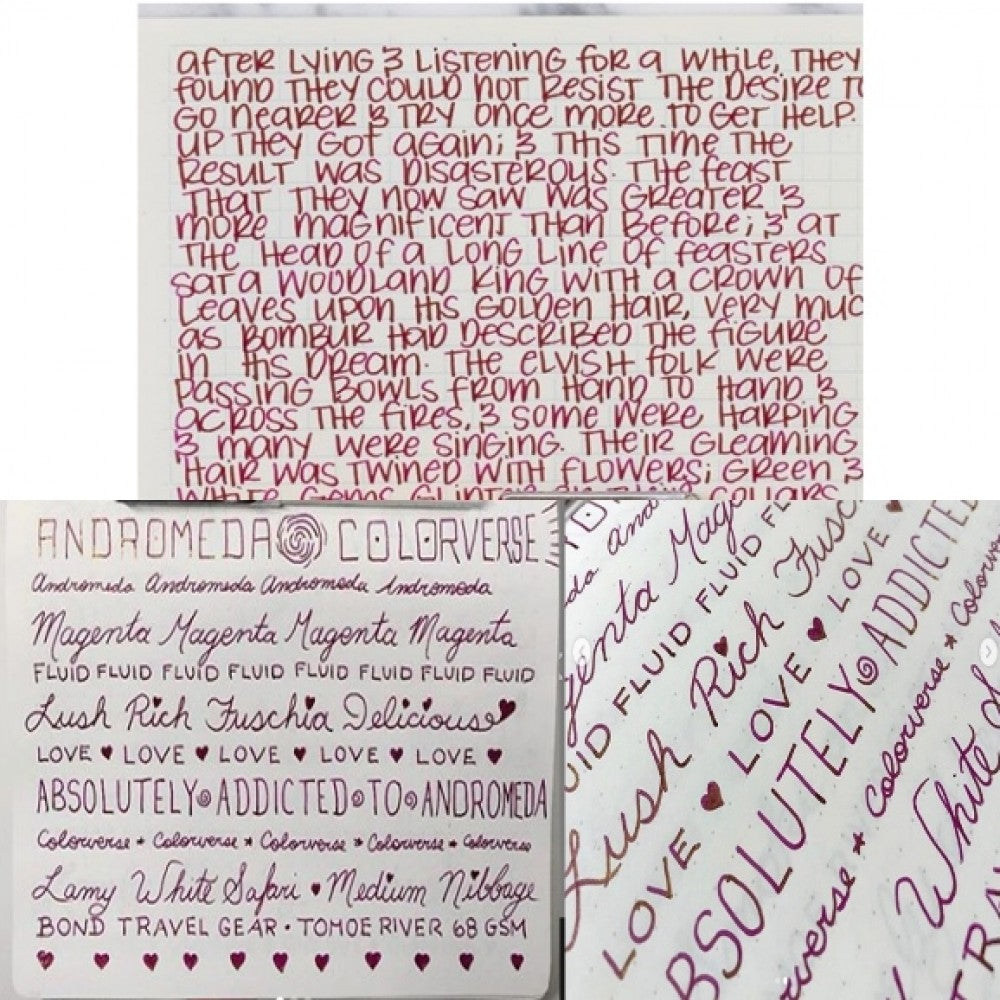 AFTER LYING 3 LISTENING FOR A WHILE, THEY
FOUND THEY COULD NOT RESIST THE DESIRE TO
GO NEARER 3 TRY ONCE MORE TO GET HELP.
UP THEY GOT AGAIN; 3 THIS TIME THE
RESULT WAS DISASTEROUS. THE FEAST
THAT THEY NOW SAW WAS GREATER 3
MORE MAGNIFICENT THAN BEFORE; 3 AT
THE HEAD OF A LONG LINE OF FEASTERS
SAT A WOODLAND KING WITH A CROWN OF
LEAVES UPON HIS GOLDEN HAIR, VERY MUC
AS BOMBUR HAD DESCRIBED THE FIGURE
IN HIS DREAM. THE ELVISH FOLK WERE
PASSING BOWLS FROM HAND TO HAND 3
ACROSS THE FIRES, 3 SOME WERE HARPING
3 MANY WERE SINGING. THEIR GLEAMING
HAIR WAS TWINED WITH FLOWERS; GREEN 3
WHITE GEMS COLLARS
ANDROMEDA COLORVERSE
Andromeda Andromeda Andromeda Andromeda
Magenta Magenta Magenta Magenta
FLUID FLUID FLUID FLUID FLUID FLUID FLUID FLUID
Lush Rich Fuschia Delicious
LOVE ♥ LOVE ♥ LOVE ♥ LOVE ♥ LOVE ♥
ABSOLUTELY ADDICTED TO ANDROMEDA
Colorverse * Colorverse * Colorverse * Colorverse * Colorverse
Lamy White Safari ♥ Medium Nibbage
BOND TRAVEL GEAR · TOMOE RIVER 68 GSM
Magenta Mag
FLUID FLUID FL
Lush Rich Fusc
LOVE ♥ LOVE ♥ LOVE ♥
BSOLUTELY ADDICTED
verse * Colorverse * Colorv
White S
TRA